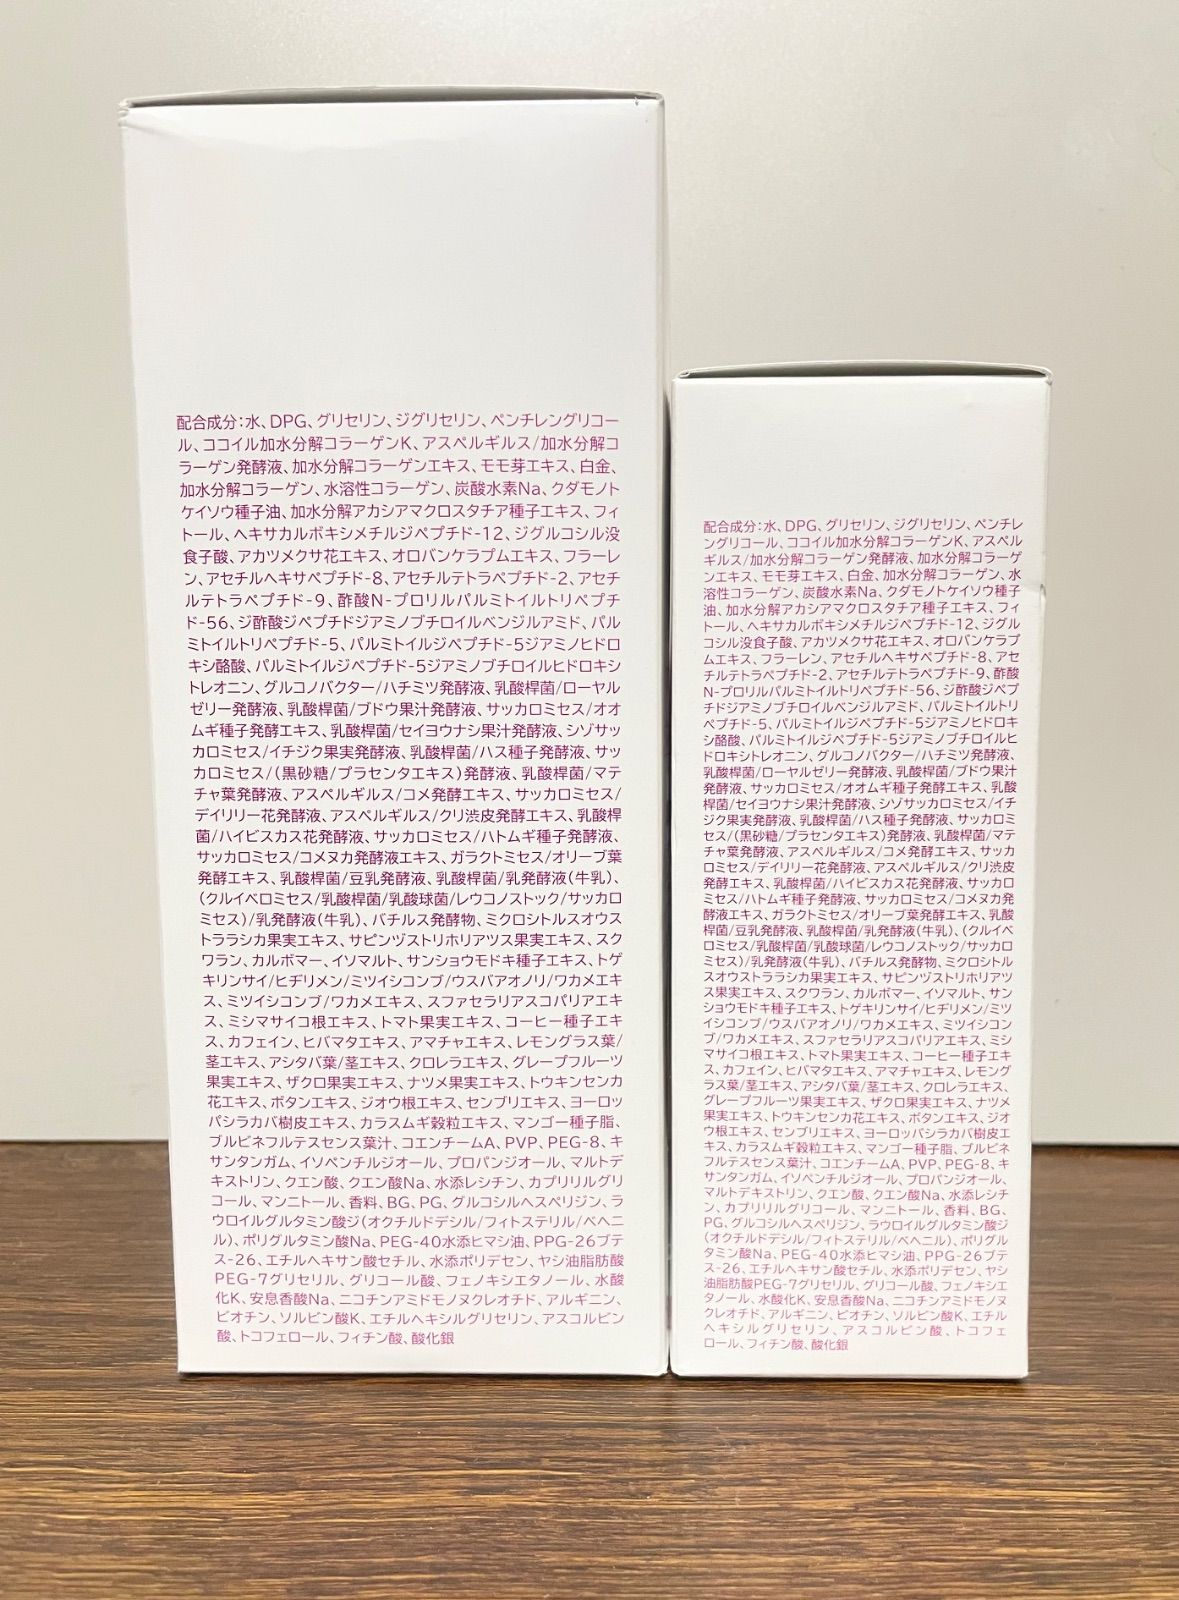 配合成分：水、DPG、グリセリン、ジグリセリン、ペンチレングリコー
ル、ココイル加水分解コラーゲンK、アスペルギルス/加水分解コ
ラーゲン発酵液、加水分解コラーゲンエキス、モモ芽エキス、白金、
加水分解コラーゲン、水溶性コラーゲン、炭酸水素Na、クダモノト
ケイソウ種子油、加水分解アカシアマクロスタチア種子エキス、フィ
トール、ヘキサカルボキシメチルジペプチド-12、ジグルコシル没
食子酸、アカツメクサ花エキス、オロバンケラプムエキス、フラーレ
ン、アセチルヘキサペプチド-8、アセチルテトラペプチド-2、アセチ
ルテトラペプチド-9、酢酸N-プロリルパルミトイルトリペプチ
ド-56、ジ酢酸ジペプチドジアミノブチロイルベンジルアミド、パル
ミトイルトリペプチド-5、パルミトイルジペプチド-5ジアミノヒドロ
キシ酪酸、パルミトイルジペプチド-5ジアミノブチロイルヒドロキシ
トレオニン、グルコノバクター/ハチミツ発酵液、乳酸桿菌/ローヤル
ゼリー発酵液、乳酸桿菌/ブドウ果汁発酵液、サッカロミセス/オオ
ムギ種子発酵エキス、乳酸桿菌/セイヨウナシ果汁発酵液、シゾサッ
カロミセス/イチジク果実発酵液、乳酸桿菌/ハス種子発酵液、サッ
カロミセス/(黒砂糖/プラセンタエキス)発酵液、乳酸桿菌/マテ
チャ葉発酵液、アスペルギルス/コメ発酵エキス、サッカロミセス/
デイリリー花発酵液、アスペルギルス/クリ渋皮発酵エキス、乳酸桿
菌/ハイビスカス花発酵液、サッカロミセス/ハトムギ種子発酵液、
サッカロミセス/コメヌカ発酵液エキス、ガラクトミセス/オリーブ葉
発酵エキス、乳酸桿菌/豆乳発酵液、乳酸桿菌/乳発酵液(牛乳)、
(クルイベロミセス/乳酸桿菌/乳酸球菌/レウコノストック/サッカロ
ミセス)/乳発酵液(牛乳)、バチルス発酵物、ミクロシトルスオウス
トララシカ果実エキス、サピンヅストリホリアツス果実エキス、スク
ワラン、カルボマー、イソマルト、サンショウモドキ種子エキス、トゲ
キリンサイ/ヒヂリメン/ミツイシコンブ/ウスバアオノリ/ワカメエキ
ス、ミツイシコンブ/ワカメエキス、スファセラリアスコパリアエキ
ス、ミシマサイコ根エキス、トマト果実エキス、コーヒー種子エキ
ス、カフェイン、ヒバマタエキス、アマチャエキス、レモングラス葉/
茎エキス、アシタバ葉/茎エキス、クロレラエキス、グレープフルーツ
果実エキス、ザクロ果実エキス、ナツメ果実エキス、トウキンセンカ
花エキス、ボタンエキス、ジオウ根エキス、センブリエキス、ヨーロッ
パシラカバ樹皮エキス、カラスムギ穀粒エキス、マンゴー種子脂、
ブルビネフルテスセンス葉汁、コエンチームA、PVP、PEG-8、キ
サンタンガム、イソペンチルジオール、プロパンジオール、マルトデ
キストリン、クエン酸、クエン酸Na、水添レシチン、カプリリルグリ
コール、マンニトール、香料、BG、PG、グルコシルヘスペリジン、ラ
ウロイルグルタミン酸ジ(オクチルドデシル/フィトステリル/ベヘニ
ル)、ポリグルタミン酸Na、PEG-40水添ヒマシ油、PPG-26ブテ
ス-26、エチルヘキサン酸セチル、水添ポリデセン、ヤシ油脂肪酸
PEG-7グリセリル、グリコール酸、フェノキシエタノール、水酸
化K、安息香酸Na、ニコチンアミドモノヌクレオチド、アルギニン、
ビオチン、ソルビン酸K、エチルヘキシルグリセリン、アスコルビン
酸、トコフェロール、フィチン酸、酸化銀
配合成分：水、DPG、グリセリン、ジグリセリン、ペンチレ
ングリコール、ココイル加水分解コラーゲンK、アスペル
ギルス/加水分解コラーゲン発酵液、加水分解コラーゲ
ンエキス、モモ芽エキス、白金、加水分解コラーゲン、水
溶性コラーゲン、炭酸水素Na、クダモノトケイソウ種子
油、加水分解アカシアマクロスタチア種子エキス、フィ
トール、ヘキサカルボキシメチルジペプチド-12、ジグル
コシル没食子酸、アカツメクサ花エキス、オロバンケラプ
ムエキス、フラーレン、アセチルヘキサペプチド-8、アセ
チルテトラペプチド-2、アセチルテトラペプチド-9、酢酸
N-プロリルパルミトイルトリペプチド-56、ジ酢酸ジペプ
チドジアミノブチロイルベンジルアミド、パルミトイルトリ
ペプチド-5、パルミトイルジペプチド-5ジアミノヒドロキ
シ酪酸、パルミトイルジペプチド-5ジアミノブチロイルヒ
ドロキシトレオニン、グルコノバクター/ハチミツ発酵液、
乳酸桿菌/ローヤルゼリー発酵液、乳酸桿菌/ブドウ果汁
発酵液、サッカロミセス/オオムギ種子発酵エキス、乳酸
桿菌/セイヨウナシ果汁発酵液、シゾサッカロミセス/イチ
ジク果実発酵液、乳酸桿菌/ハス種子発酵液、サッカロミ
セス/(黒砂糖/プラセンタエキス)発酵液、乳酸桿菌/マテ
チャ葉発酵液、アスペルギルス/コメ発酵エキス、サッカ
ロミセス/デイリリー花発酵液、アスペルギルス/クリ渋皮
発酵エキス、乳酸桿菌/ハイビスカス花発酵液、サッカロ
ミセス/ハトムギ種子発酵液、サッカロミセス/コメヌカ発
酵液エキス、ガラクトミセス/オリーブ葉発酵エキス、乳酸
桿菌/豆乳発酵液、乳酸桿菌/乳発酵液(牛乳)、(クルイベ
ロミセス/乳酸桿菌/乳酸球菌/レウコノストック/サッカロ
ミセス)/乳発酵液(牛乳)、バチルス発酵物、ミクロシトル
スオウストララシカ果実エキス、サピンヅストリホリアツ
ス果実エキス、スクワラン、カルボマー、イソマルト、サン
ショウモドキ種子エキス、トゲキリンサイ/ヒヂリメン/ミツ
イシコンブ/ウスバアオノリ/ワカメエキス、ミツイシコン
ブ/ワカメエキス、スファセラリアスコパリアエキス、ミシ
マサイコ根エキス、トマト果実エキス、コーヒー種子エキ
ス、カフェイン、ヒバマタエキス、アマチャエキス、レモング
ラス葉/茎エキス、アシタバ葉/茎エキス、クロレラエキス、
グレープフルーツ果実エキス、ザクロ果実エキス、ナツメ
果実エキス、トウキンセンカ花エキス、ボタンエキス、ジオ
ウ根エキス、センブリエキス、ヨーロッパシラカバ樹皮エ
キス、カラスムギ穀粒エキス、マンゴー種子脂、ブルビネ
フルテスセンス葉汁、コエンチームA、PVP、PEG-8、キ
サンタンガム、イソペンチルジオール、プロパンジオール、
マルトデキストリン、クエン酸、クエン酸Na、水添レシチ
ン、カプリリルグリコール、マンニトール、香料、BG、
PG、グルコシルヘスペリジン、ラウロイルグルタミン酸ジ
(オクチルドデシル/フィトステリル/ベヘニル)、ポリグル
タミン酸Na、PEG-40水添ヒマシ油、PPG-26ブテ
ス-26、エチルヘキサン酸セチル、水添ポリデセン、ヤシ
油脂肪酸PEG-7グリセリル、グリコール酸、フェノキシエ
タノール、水酸化K、安息香酸Na、ニコチンアミドモノヌ
クレオチド、アルギニン、ビオチン、ソルビン酸K、エチル
ヘキシルグリセリン、アスコルビン酸、トコフェ
ロール、フィチン酸、酸化銀